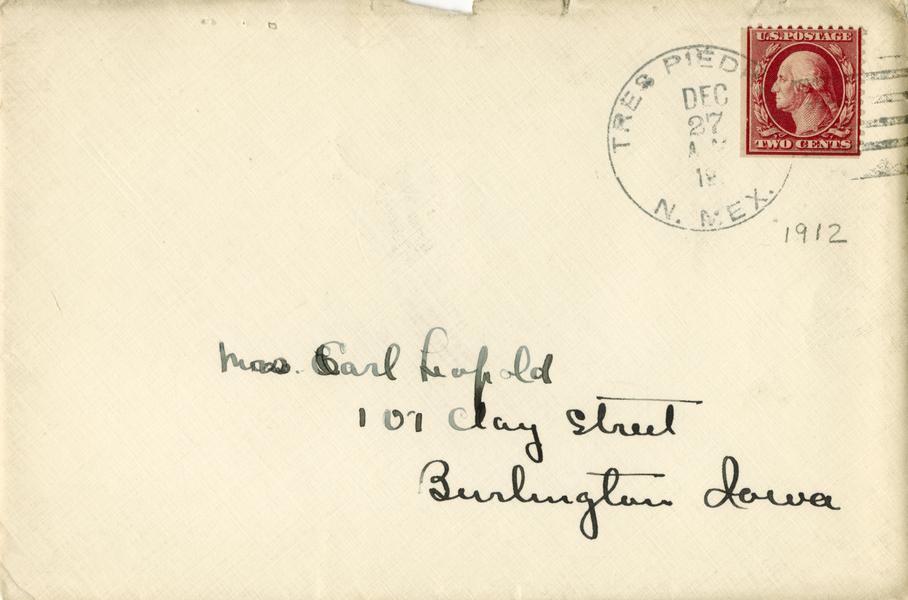 U.S. POSTAGE
TWO CENTS
TRES PIED
DEC
27
A M
N. MEX.
1912
Mrs. Carl Leopold
101 Clay Street
Burlington Iowa